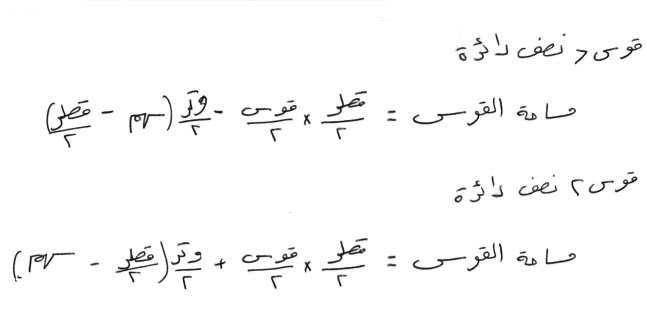 قوس > نصف دائرة
مساحة القوس = قطر/٢ × قوس/٢ - وتر/٢ (سهم - قطر/٢)
قوس ٢ نصف دائرة
مساحة القوس = قطر/٢ × قوس/٢ + وتر/٢ (قطر/٢ - سهم)